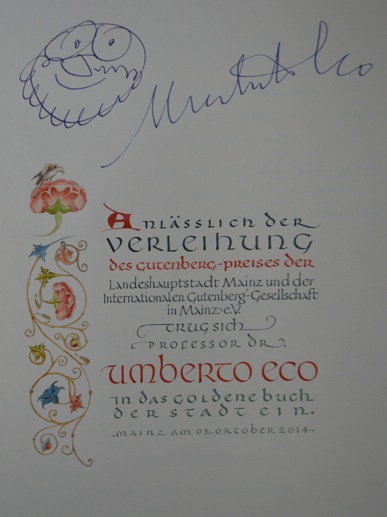 Umberto Eco
Anlässlich der
Verleihung
des Gutenberg-Preises der
Landeshauptstadt Mainz und der
Internationalen Gutenberg-Gesellschaft
in Mainz e.V.
trug sich
Professor Dr.
Umberto Eco
in das Goldene Buch
der Stadt ein.
Mainz am 02. Oktober 2014